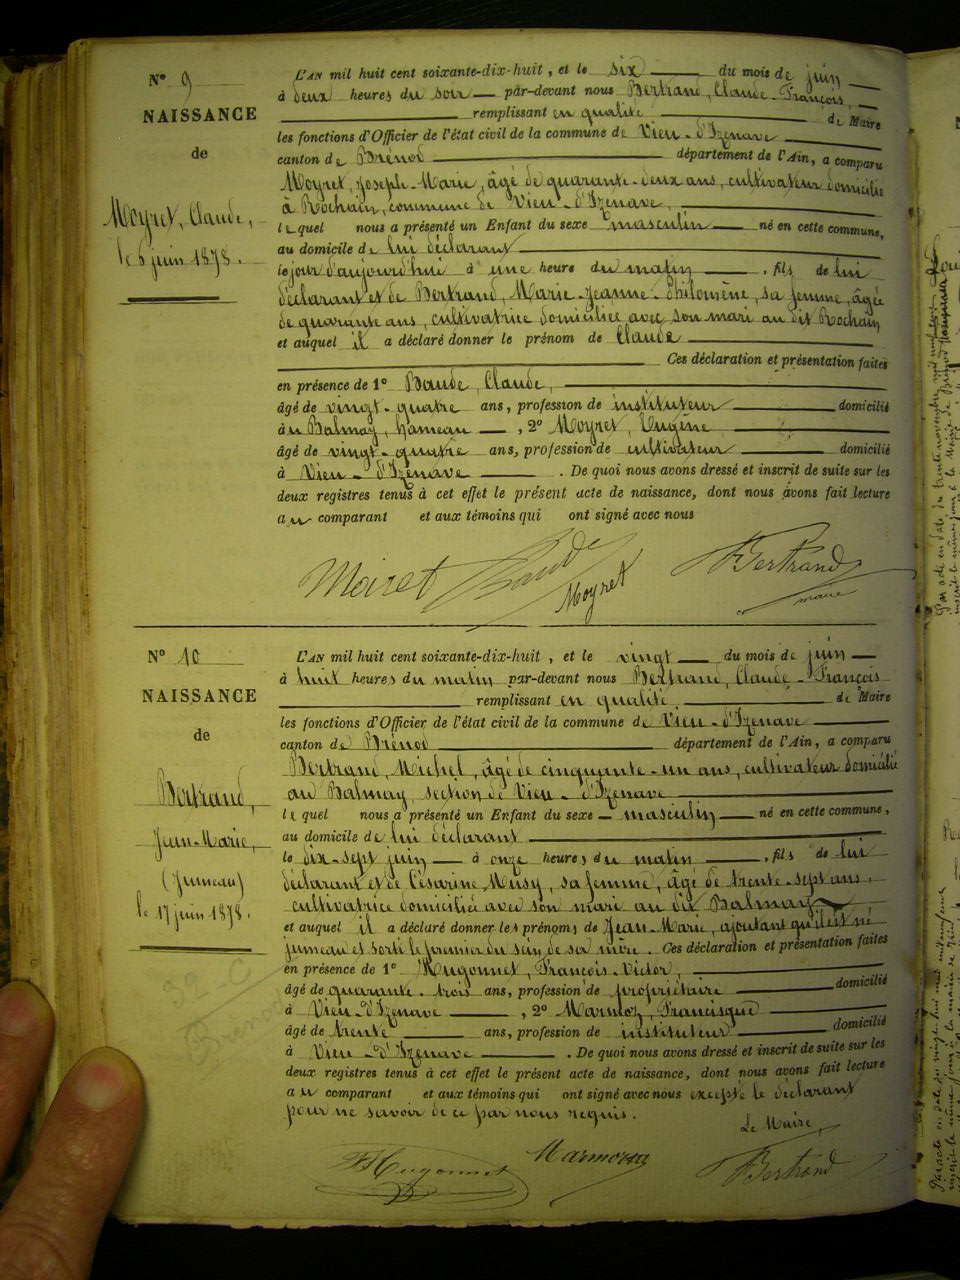 N° 9
NAISSANCE
de
Moyret, Claude,
le 6 juin 1878.
L'AN mil huit cent soixante-dix-huit, et le six du mois de juin
à deux heures du soir par-devant nous Bertrand, Claude-François,
remplissant en qualité de Maire
les fonctions d'Officier de l'état civil de la commune de Vieu-d'Izenave
canton de Brénod département de l'Ain, a comparu
Moyret, Joseph-Marie, âgé de quarante-deux ans, cultivateur domicilié
à Rochain, commune de Vieu-d'Izenave,
lequel nous a présenté un Enfant du sexe masculin né en cette commune,
au domicile de lui déclarant
le jour d'aujourd'hui à une heure du matin, fils de lui
déclarant et de Bertrand, Marie-Jeanne-Philomène, sa femme, âgée
de quarante ans, cultivatrice domiciliée avec son mari au dit Rochain
et auquel il a déclaré donner le prénom de Claude
Ces déclaration et présentation faites
en présence de 1° Baude, Claude,
âgé de vingt-quatre ans, profession de instituteur domicilié
à au Balmay, hameau, 2° Moyret, Eugène
âgé de vingt-quatre ans, profession de cultivateur domicilié
à Vieu-d'Izenave. De quoi nous avons dressé et inscrit de suite sur les
deux registres tenus à cet effet le présent acte de naissance, dont nous avons fait lecture
au comparant et aux témoins qui ont signé avec nous
Moiret Baude Moyret Bertrand
maire
N° 10
NAISSANCE
de
Bertrand,
Jean-Marie,
(Jumeau)
le 17 juin 1878.
L'AN mil huit cent soixante-dix-huit, et le vingt du mois de juin
à huit heures du matin par-devant nous Bertrand, Claude-François
remplissant en qualité de Maire
les fonctions d'Officier de l'état civil de la commune de Vieu-d'Izenave
canton de Brénod département de l'Ain, a comparu
Bertrand, Michel, âgé de cinquante-un ans, cultivateur domicilié
au Balmay, section de Vieu-d'Izenave
lequel nous a présenté un Enfant du sexe masculin né en cette commune,
au domicile de lui déclarant
le dix-sept juin à onze heures du matin, fils de lui
déclarant et de Césarine Musy, sa femme, âgé de trente-sept ans,
cultivatrice domiciliée avec son mari au dit Balmay
et auquel il a déclaré donner les prénoms de Jean-Marie, ajoutant qu'il est né
jumeau et sorti le premier du sein de sa mère. Ces déclaration et présentation faites
en présence de 1° Hugonnet, François-Victor,
âgé de quarante-trois ans, profession de propriétaire domicilié
à Vieu-d'Izenave, 2° Marmoz, Francisque
âgé de trente ans, profession de instituteur domicilié
à Vieu-d'Izenave. De quoi nous avons dressé et inscrit de suite sur les
deux registres tenus à cet effet le présent acte de naissance, dont nous avons fait lecture
au comparant et aux témoins qui ont signé avec nous excepté le déclarant
pour ne savoir de ce par nous requis.
Le Maire,
Hugonnet Marmoz Bertrand